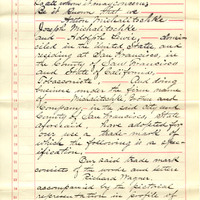 To all whom it may concern:
Be it Known that we
Anton Michalitschke
Joseph Michalitschke
and Adolph Bude, domi-
ciled in the United States, and
residing at San Francisco, in
the County of San Francisco
and State of California,
Tobacconists, and doing
business under the firm name
of Michalitschke, Bros. and
Company, in the said City and
County of San Francisco, State
aforesaid, have adopted for
our use a trade mark of
which the following is a spe-
cification.
Our said trade mark
consists of the words and picture
Richard Wagner,
accompanied by the pictorial
representation in profile of